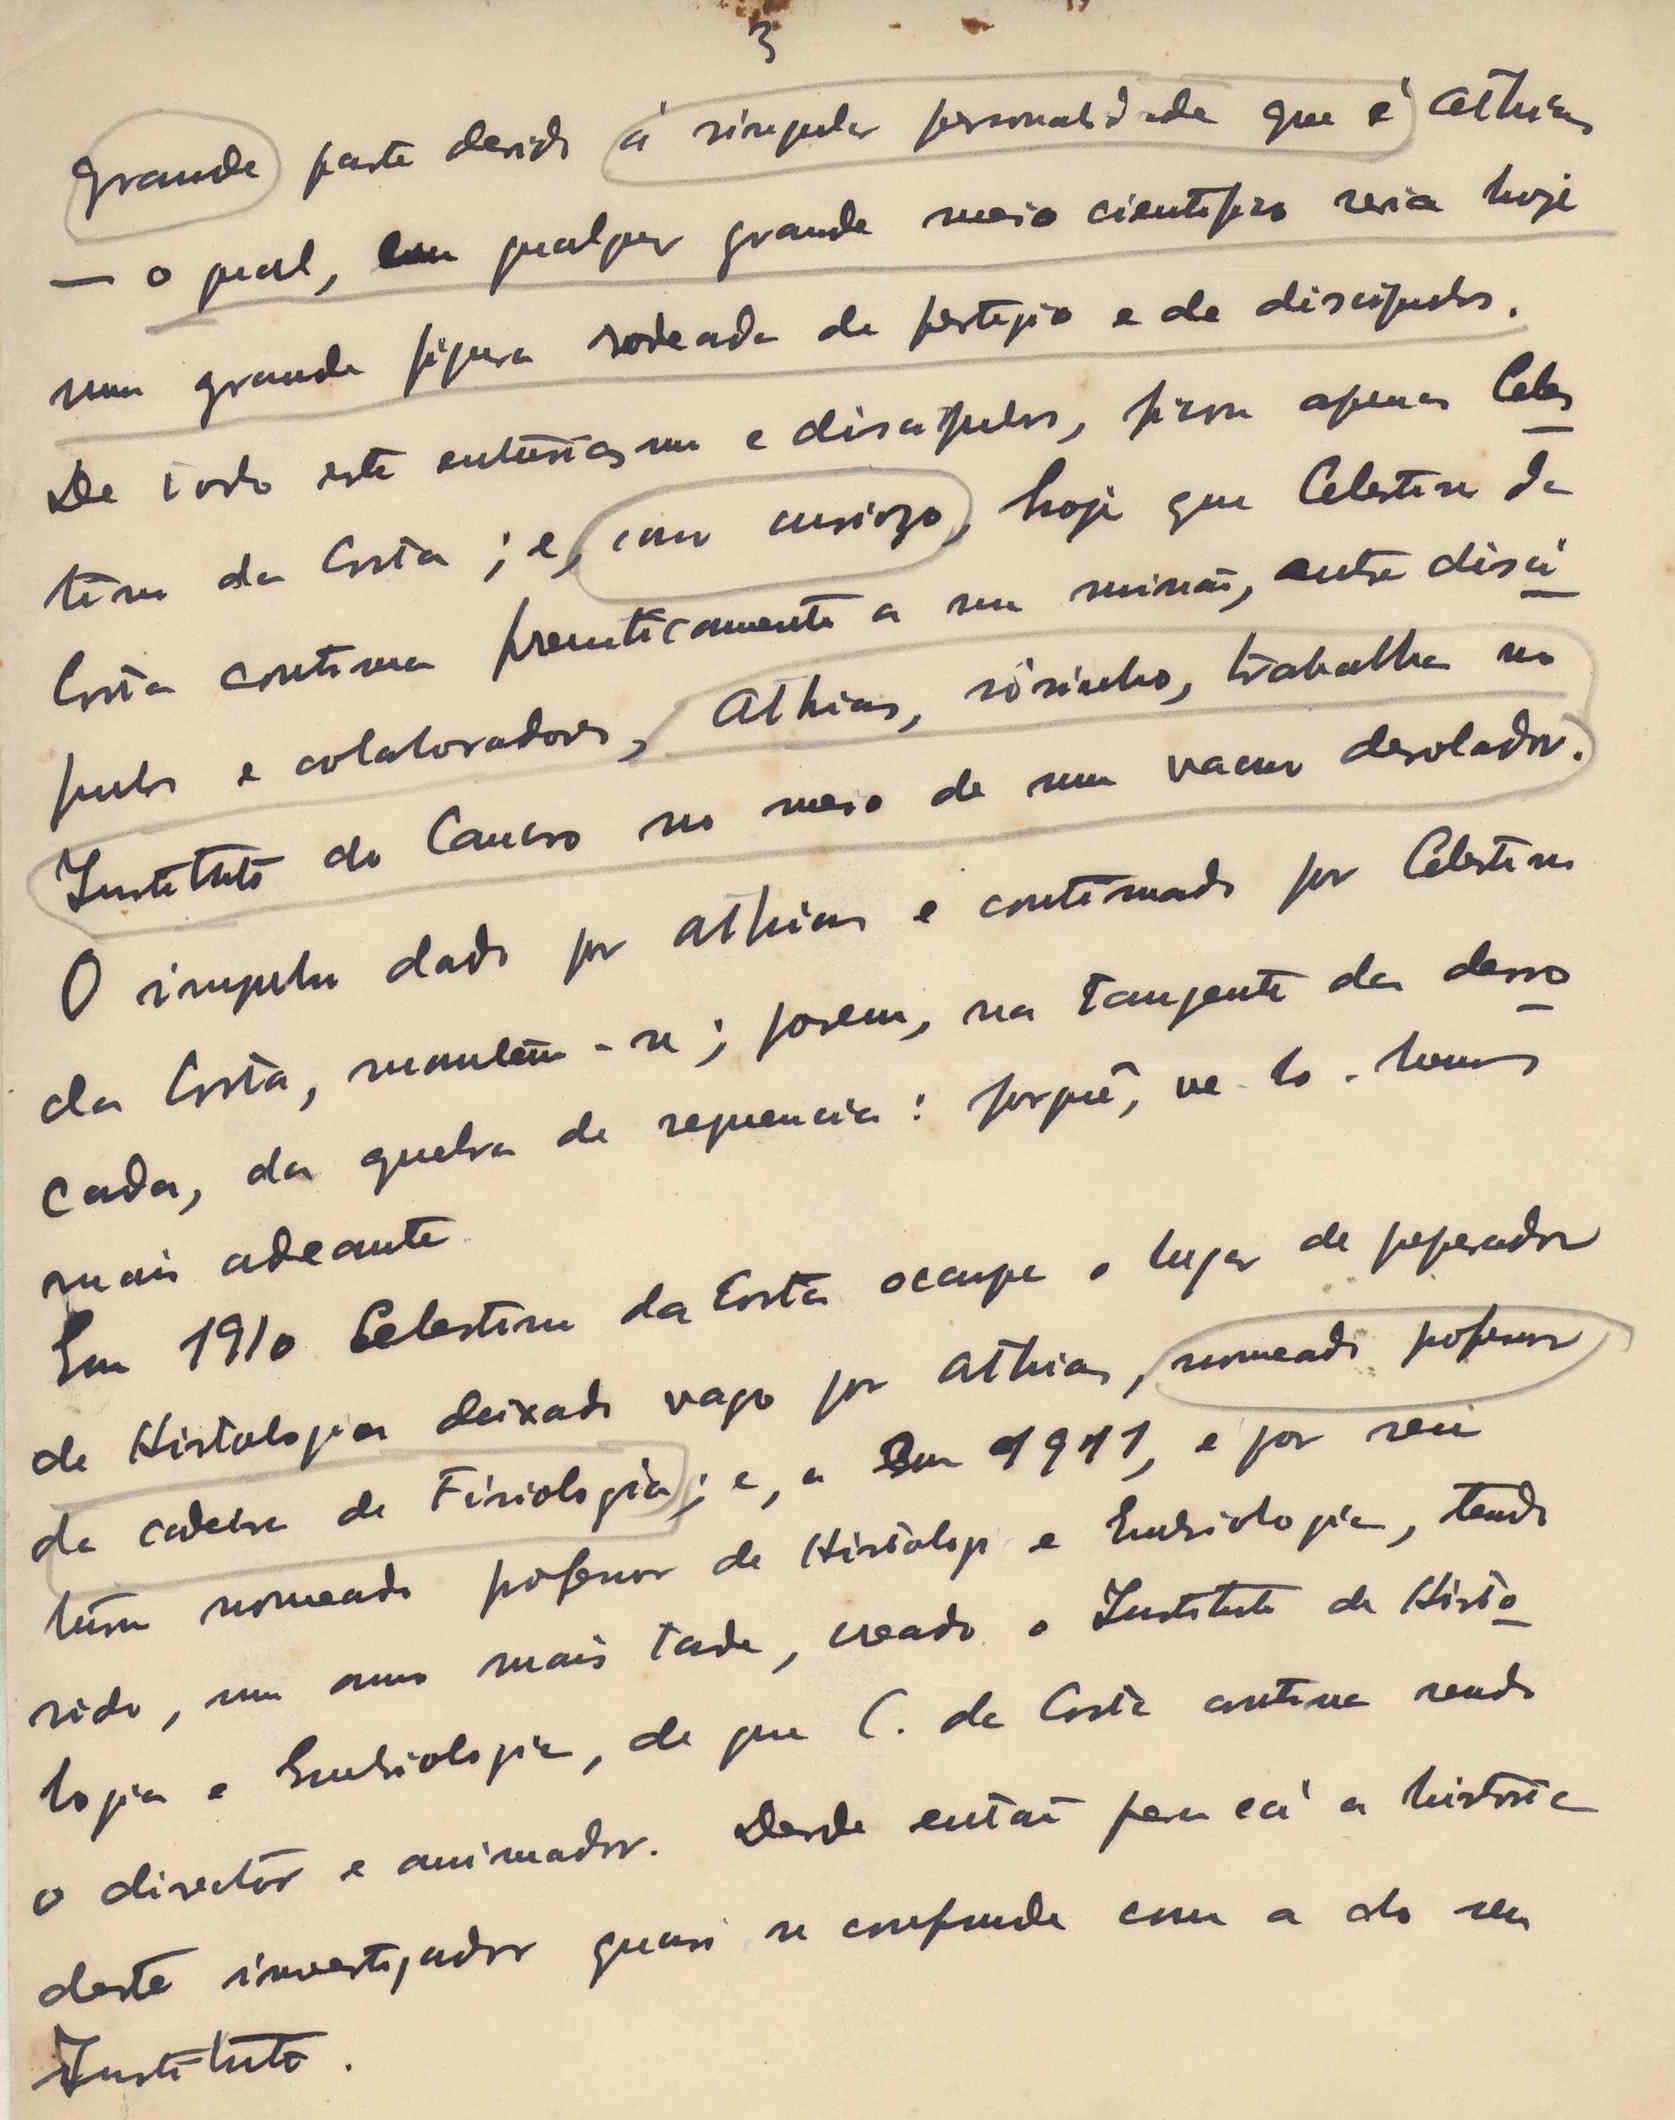 3
grande parte devido á singular personalidade que é Athias
— o qual, em qualquer grande meio cientifico seria hoje
uma grande figura rodeada de prestigio e de discipulos.
De todo este entusiasmo e discipulos, ficou apenas Celes
tino da Costa ; e, caso curioso, hoje que Celestino da
Costa continua freneticamente a sua missão, entre discí
pulos e colaboradores, Athias, sósinho, trabalha no
Instituto do Cancro no meio de um vacuo desolador.
O impulso dado por Athias e continuado por Celestino
da Costa, mantém-se ; porem, na tangente da derro
cada, da quebra de sequencia : porquê, ve-lo-hemos
mais adeante
Em 1910 Celestino da Costa ocupa o lugar de preparador
de Histologia deixado vago por Athias, nomeado professor
da cadeira de Fisiologia ; e, a em 1911, é por seu
turno nomeado professor de Histologi e Embriologia, tendo
sido, um ano mais tarde, creado o Instituto de Histo
logia e Embriologia, de que C. da Costa continua sendo
o director e animador. Desde então para cá a historia
deste investigador quasi se confunde com a do seu
Instituto.